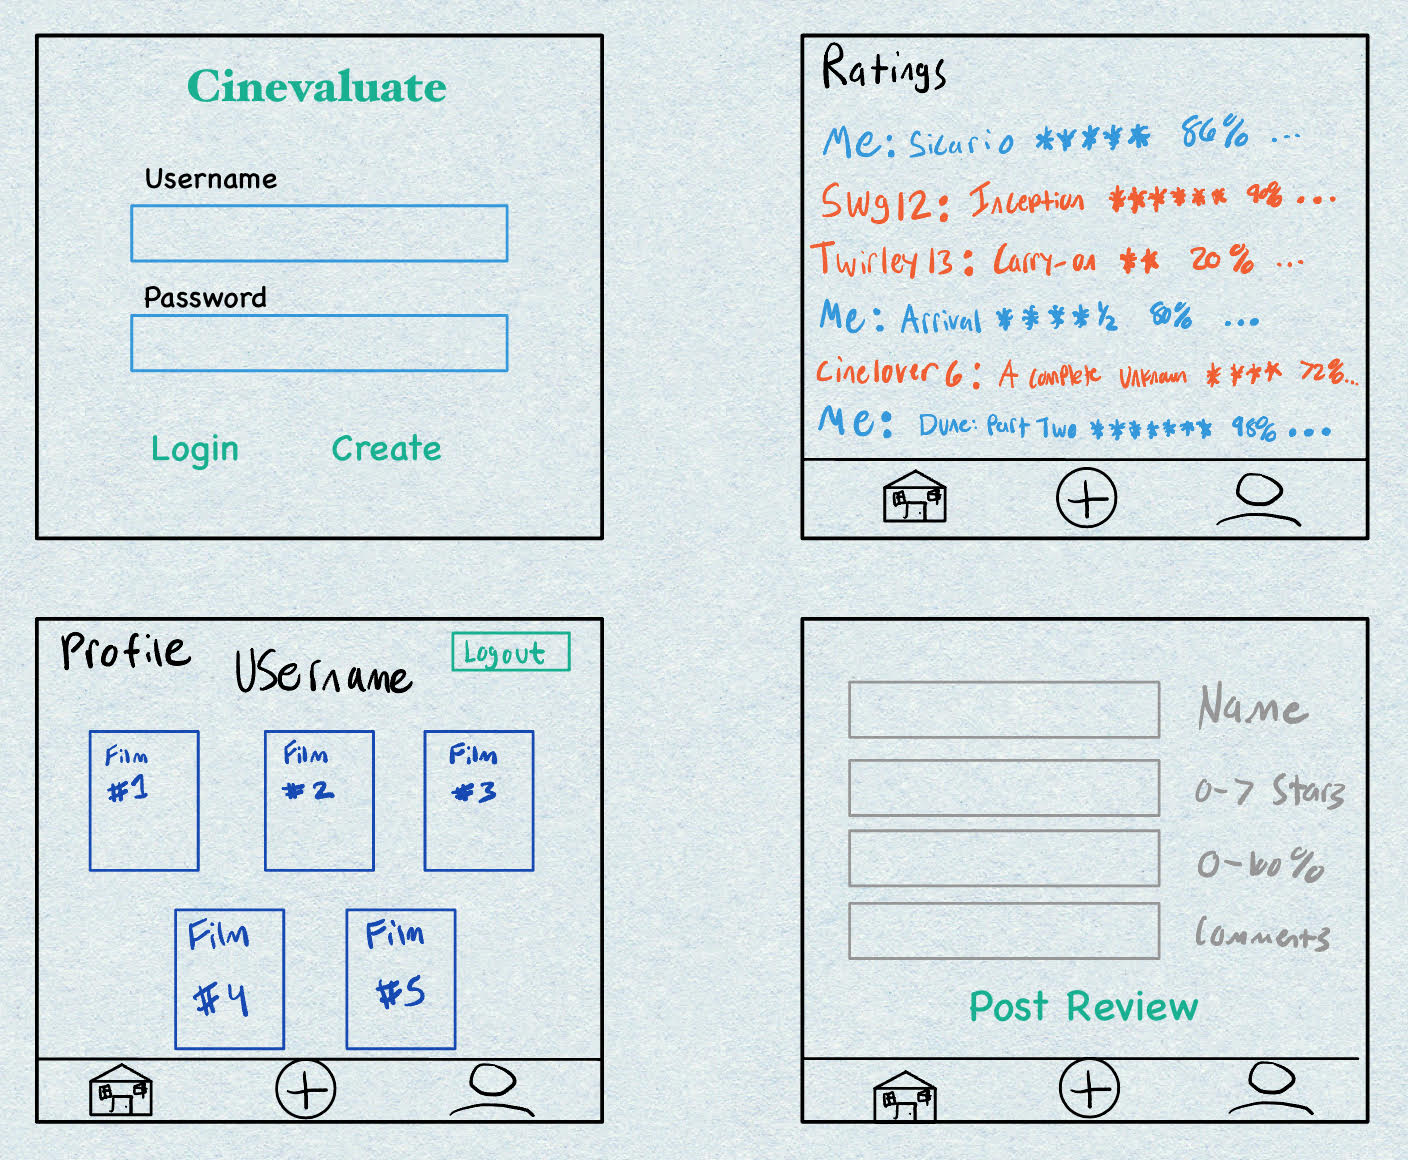 Cinevaluate
Username
Password
Login Create
Ratings
Me: Sicario ***** 86% ...
Swg12: Inception ****** 90% ...
Twirley13: Carry-on ** 20% ...
Me: Arrival ****½ 80% ...
Cinelover6: A complete Unknown **** 72%...
Me: Dune: Part Two ******* 98% ...
Profile
Username
Logout
Film
#1
Film
#2
Film
#3
Film
#4
Film
#5
Name
0-7 Stars
0-100%
Comments
Post Review